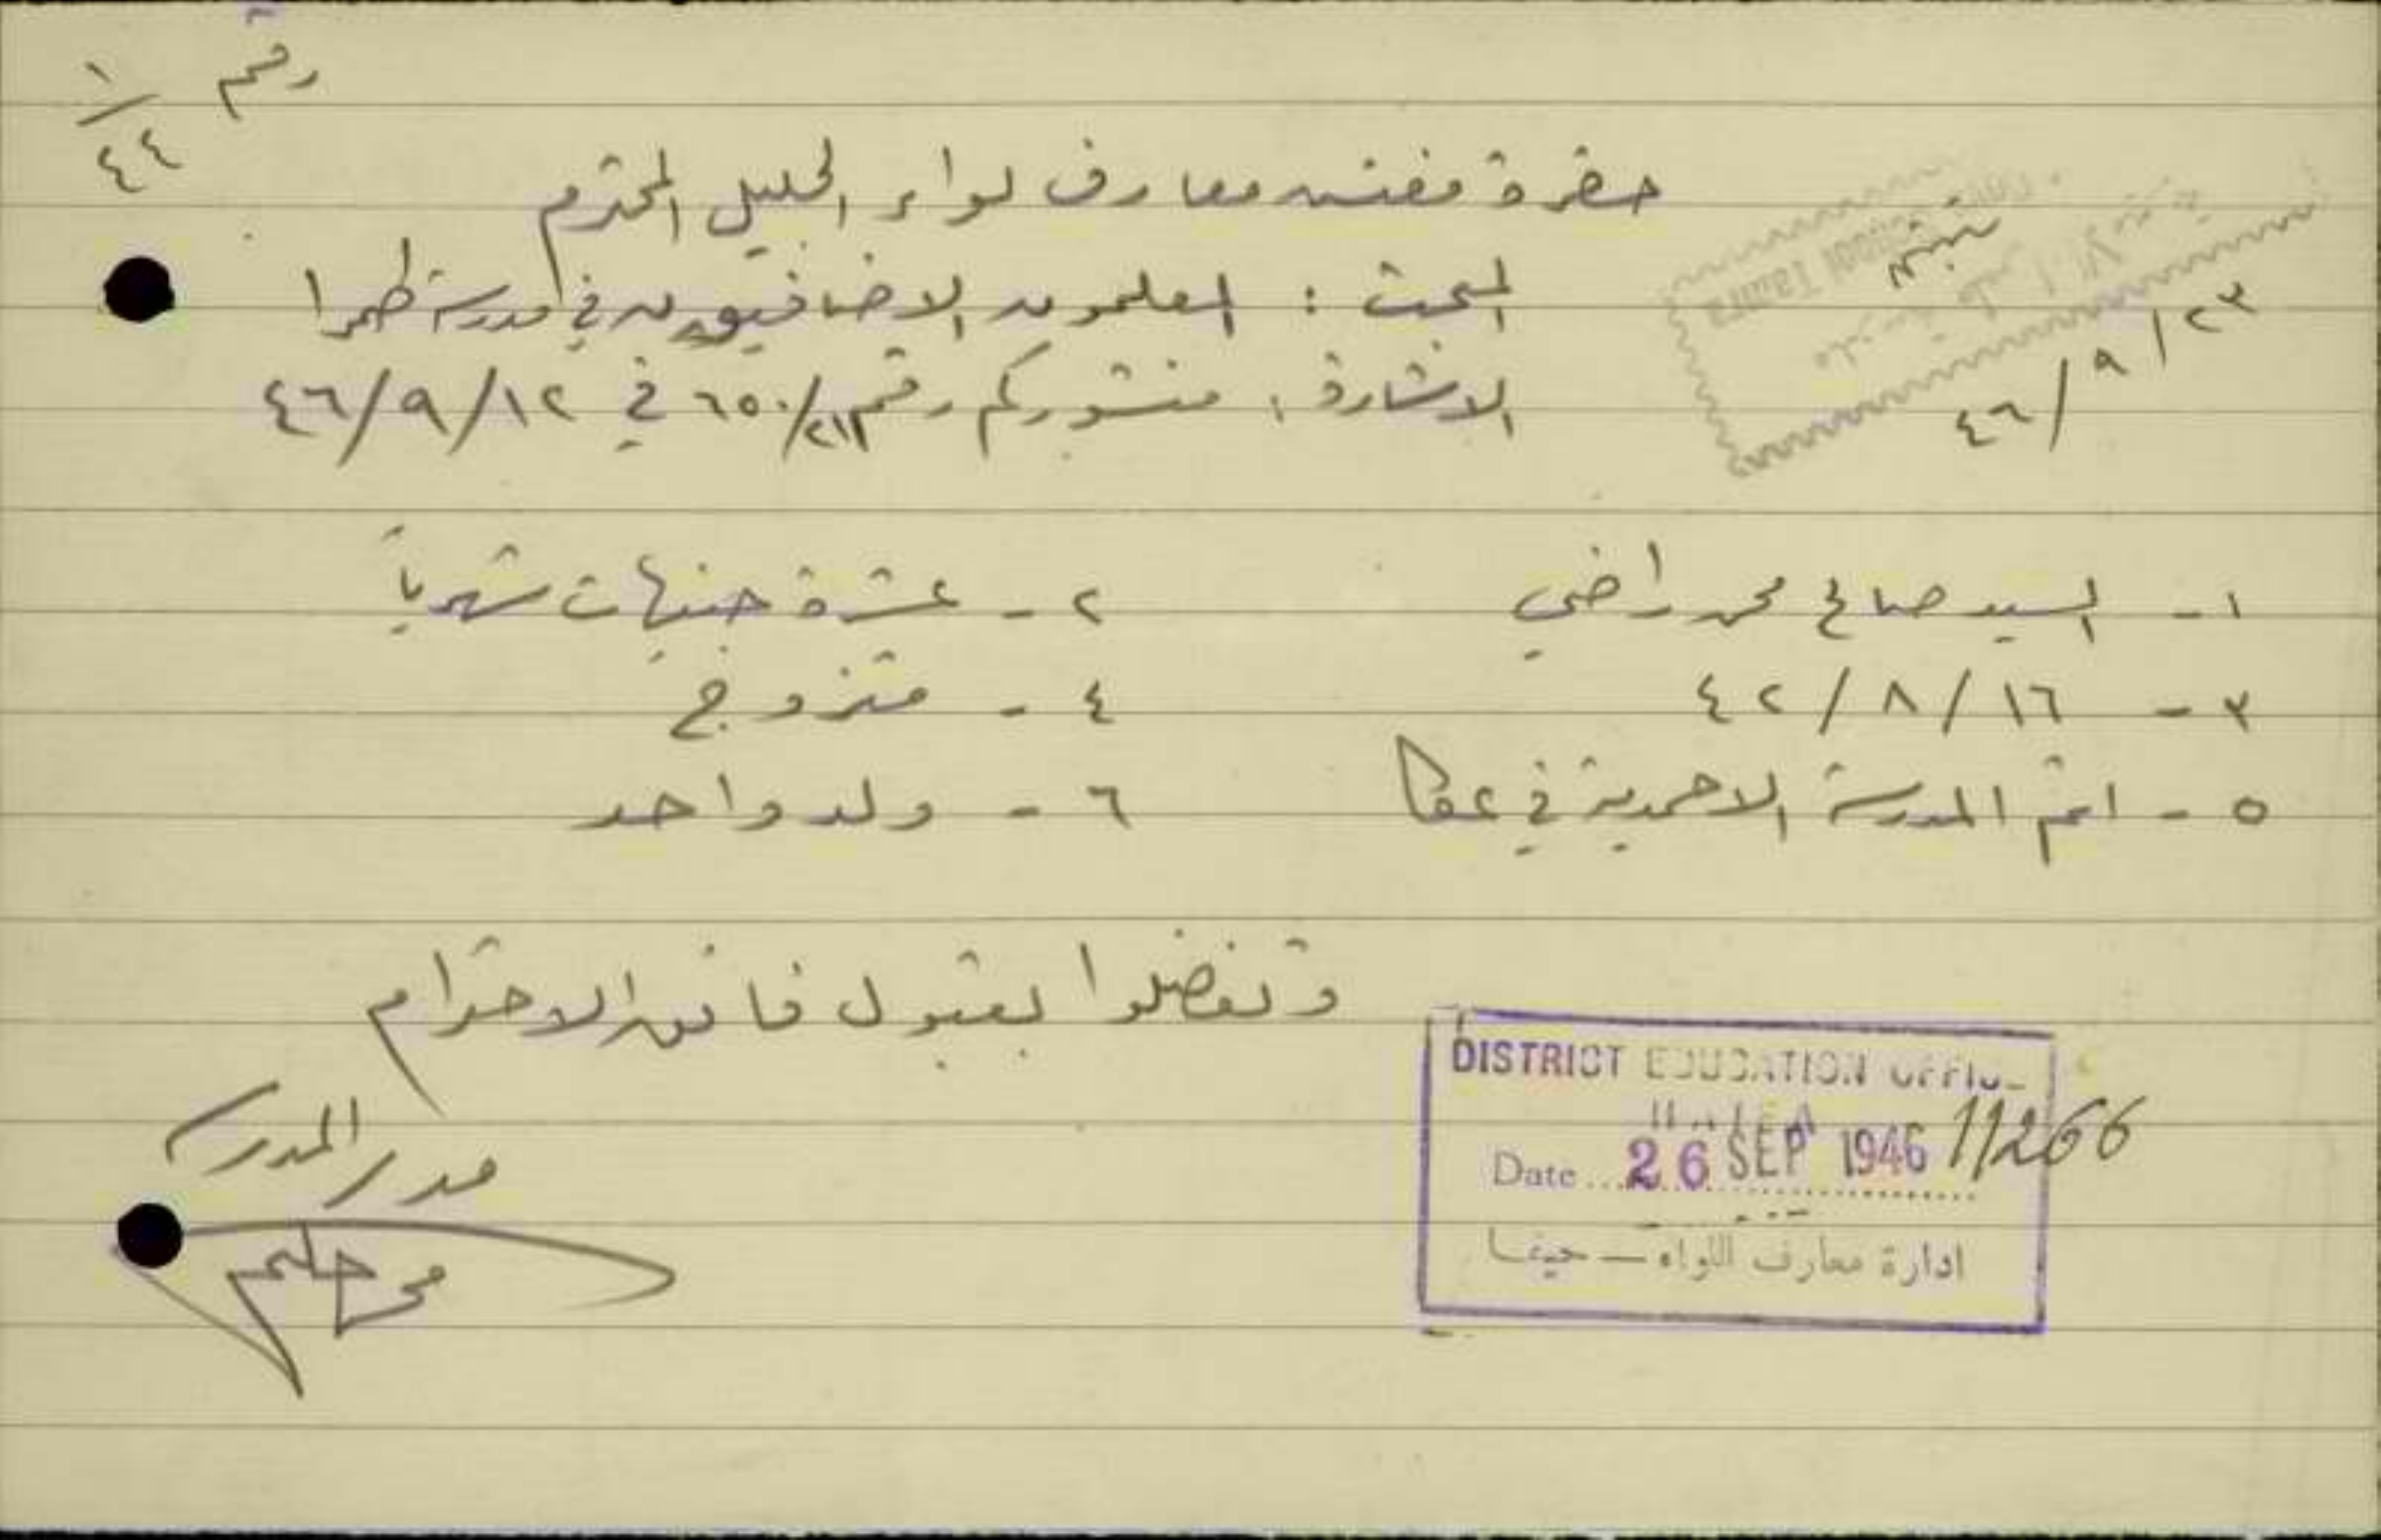 رقم ١/٤٤
حضرة مفتش معارف لواء الجليل المحترم
المبحث : المعلمون الاضافيون في مدرسة طمرا
٢٣/٩/٤٦
الاشارة : منشوركم رقم ٦٥٠/٢١١ في ٤٦/٩/١٢
١- السيد صالح محمد راضي
٢- عشرة جنيهات شهرياً
٣- ٤٢/٨/١٦
٤- متزوج
٥- اتم المدرسة الاحمدية في عكا
٦- ولد واحد
وتفضلوا بقبول فائق الاحترام
مدير المدرسة
DISTRICT EDUCATION OFFICE
HAIFA
Date 26 SEP 1946 11266
ادارة معارف اللواء — حيفا